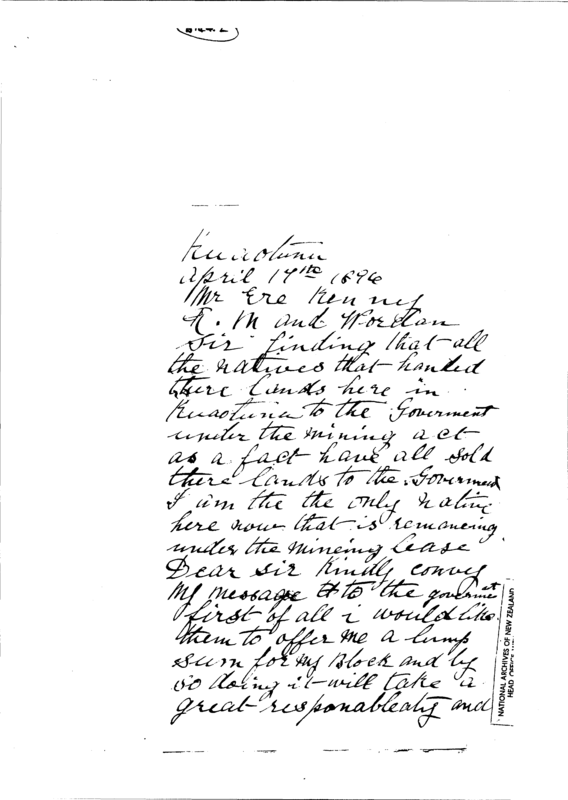 Kuaotunu
April 17th 1896
Mr Ere Kenny
R. M and Wordan
Sir finding that all
the natives that handed
there lands here in
Kuaotunu to the Goverment
under the mining act
as a fact have all sold
there lands to the Goverment
I am the the only native
here now that is remaneing
under the mineing lease
Dear Sir Kindly convey
my message to the goverment
first of all i would like
them to offer me a lump
sum for my Block and by
so doing it will take a
great responableaty and
NATIONAL ARCHIVES OF NEW ZEALAND
HEAD OFFICE